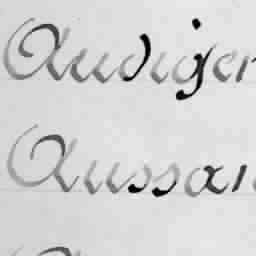 Audiger
Aussan